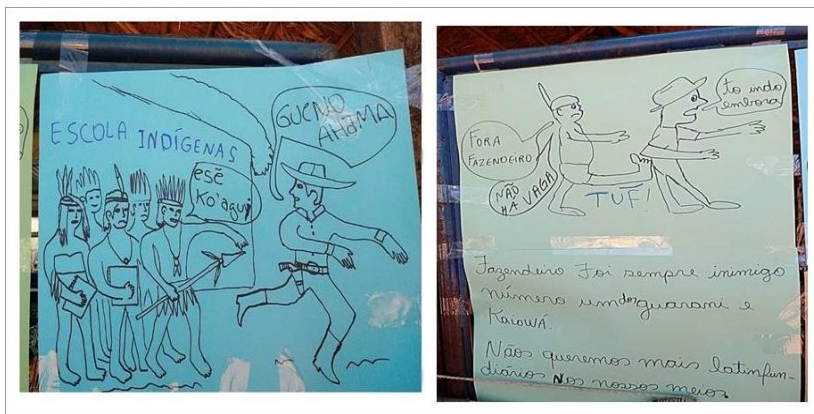 ESCOLA INDÍGENAS
GUENO
AHAMA
esẽ
ko'agui
FORA
FAZENDEIRO
to indo
embora
NÃO
HA VAGA
TUF!
Fazendeiro Foi sempre inimigo
número um dos guarani e
KaiowÁ.
Nãos queremos mais latinfun-
diários Nos nossos meios